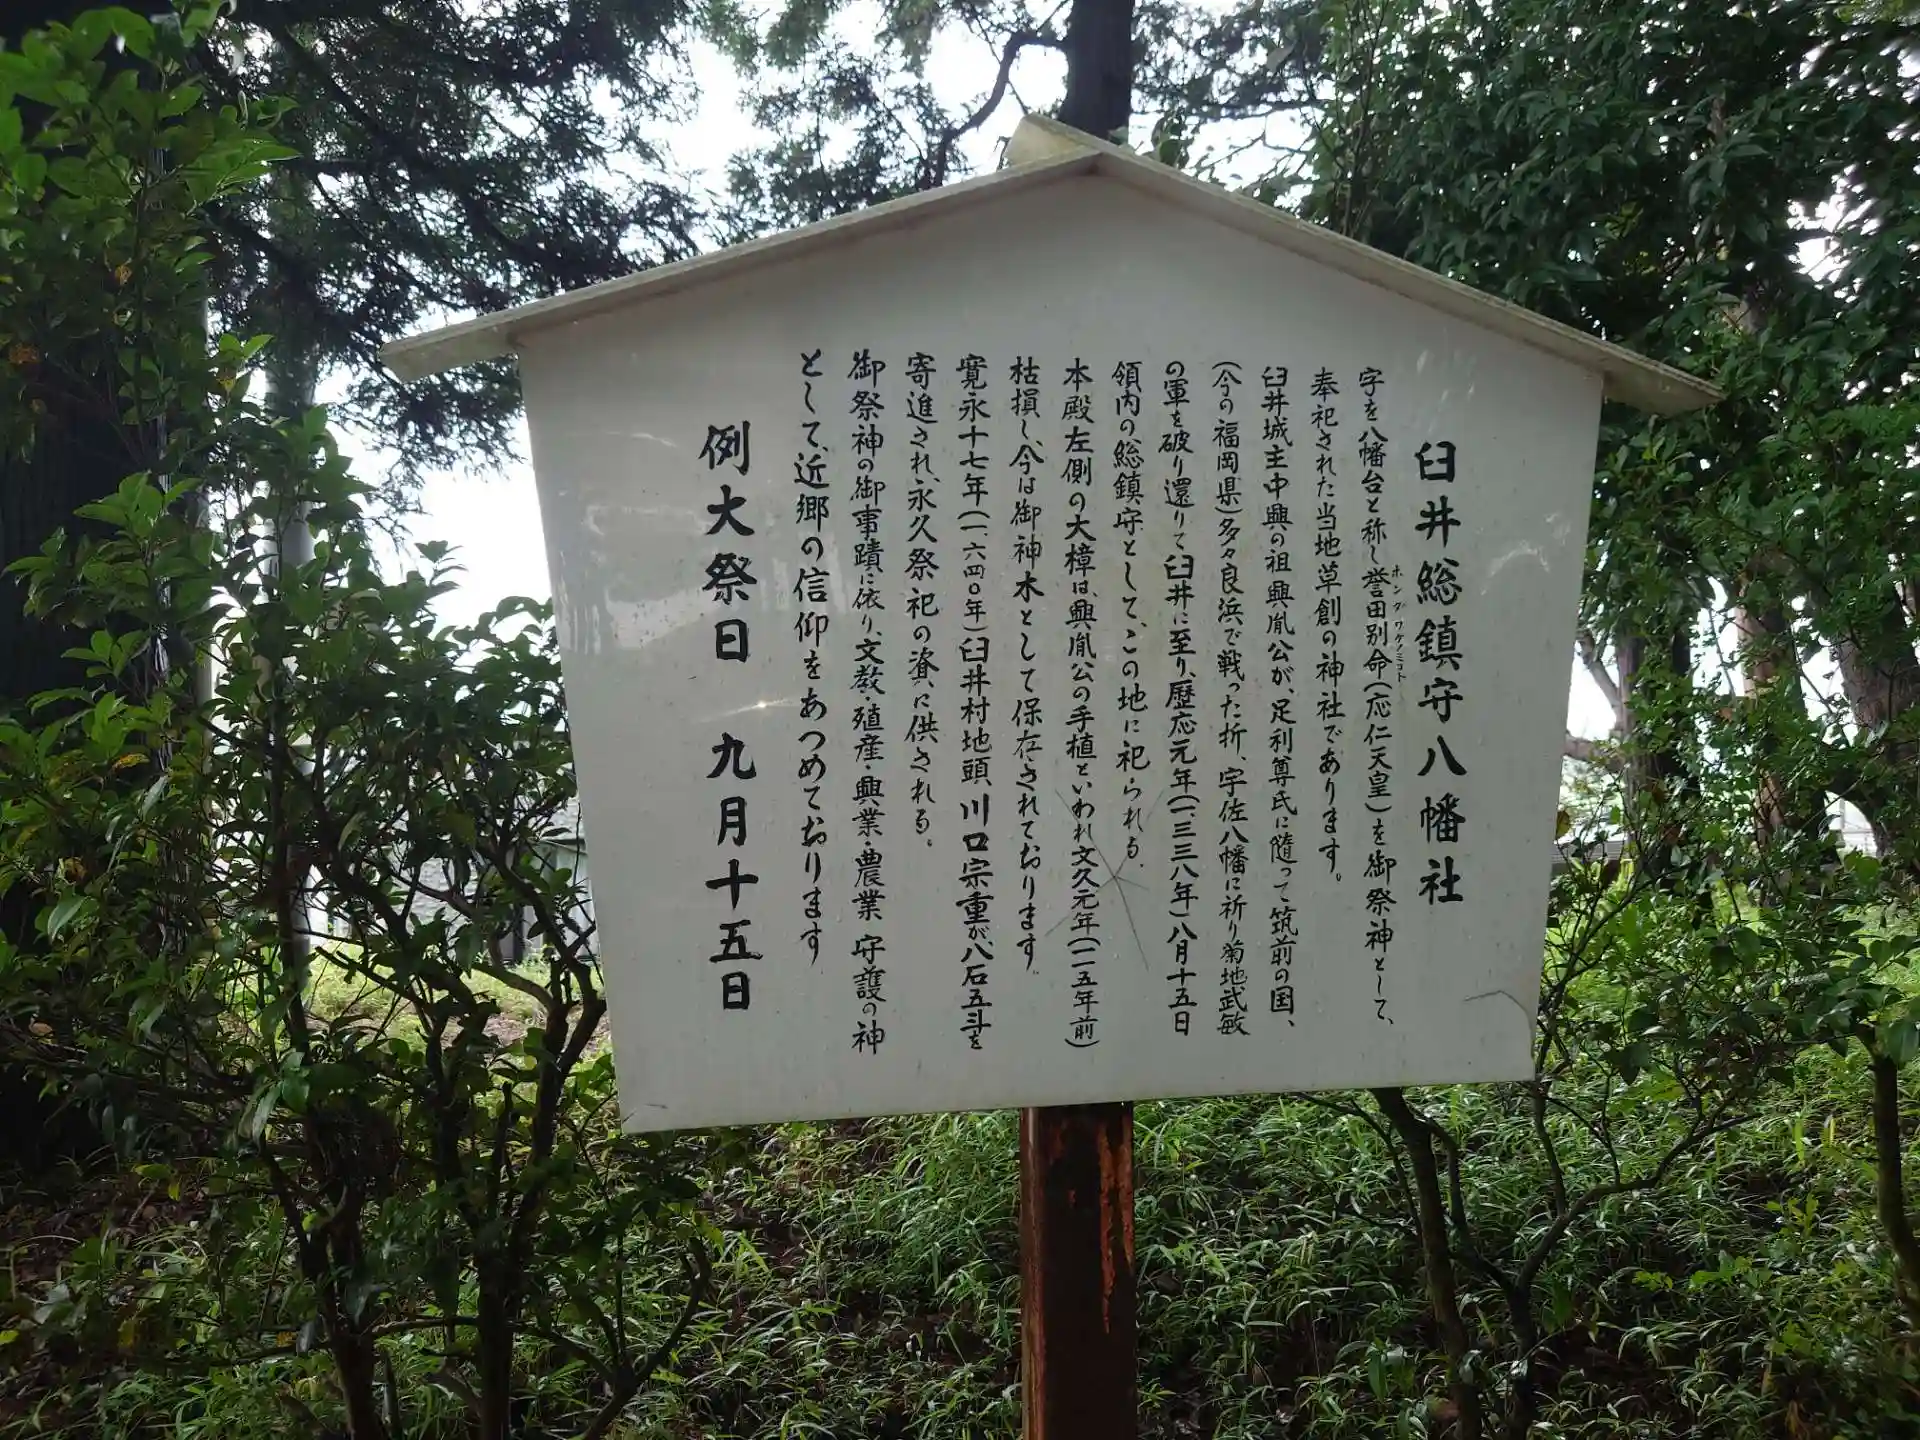 臼井総鎮守八幡社
字を八幡台と称し誉田別命(応仁天皇)を御祭神として、
ホンダワケノミコト
奉祀された当地草創の神社であります。
臼井城主中興の祖興胤公が、足利尊氏に随って筑前の国、
(今の福岡県)多々良浜で戦った折、宇佐八幡に祈り菊地武敏
の軍を破り還りて臼井に至り、歴応元年(一、三三八年)八月十五日
領内の総鎮守として、この地に祀られる。
本殿左側の大樟は、興胤公の手植といわれ文久元年(一一五年前)
枯損し、今は御神木として保存されております。
寛永十七年(一、六四〇年)臼井村地頭、川口宗重が、八石五斗を
寄進され、永久祭祀の資に供される。
御祭神の御事蹟に依り、文教・殖産・興業・農業、守護の神
として、近郷の信仰をあつめております
例大祭日 九月十五日